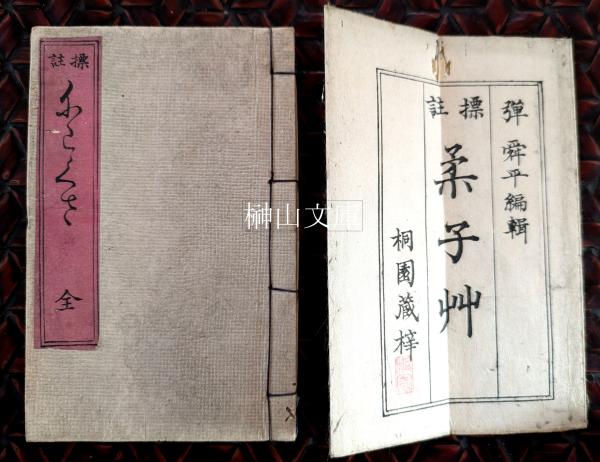 標註
にこくさ
全
榊山文庫
彈舜平編輯
標註
柔子艸
桐園藏梓